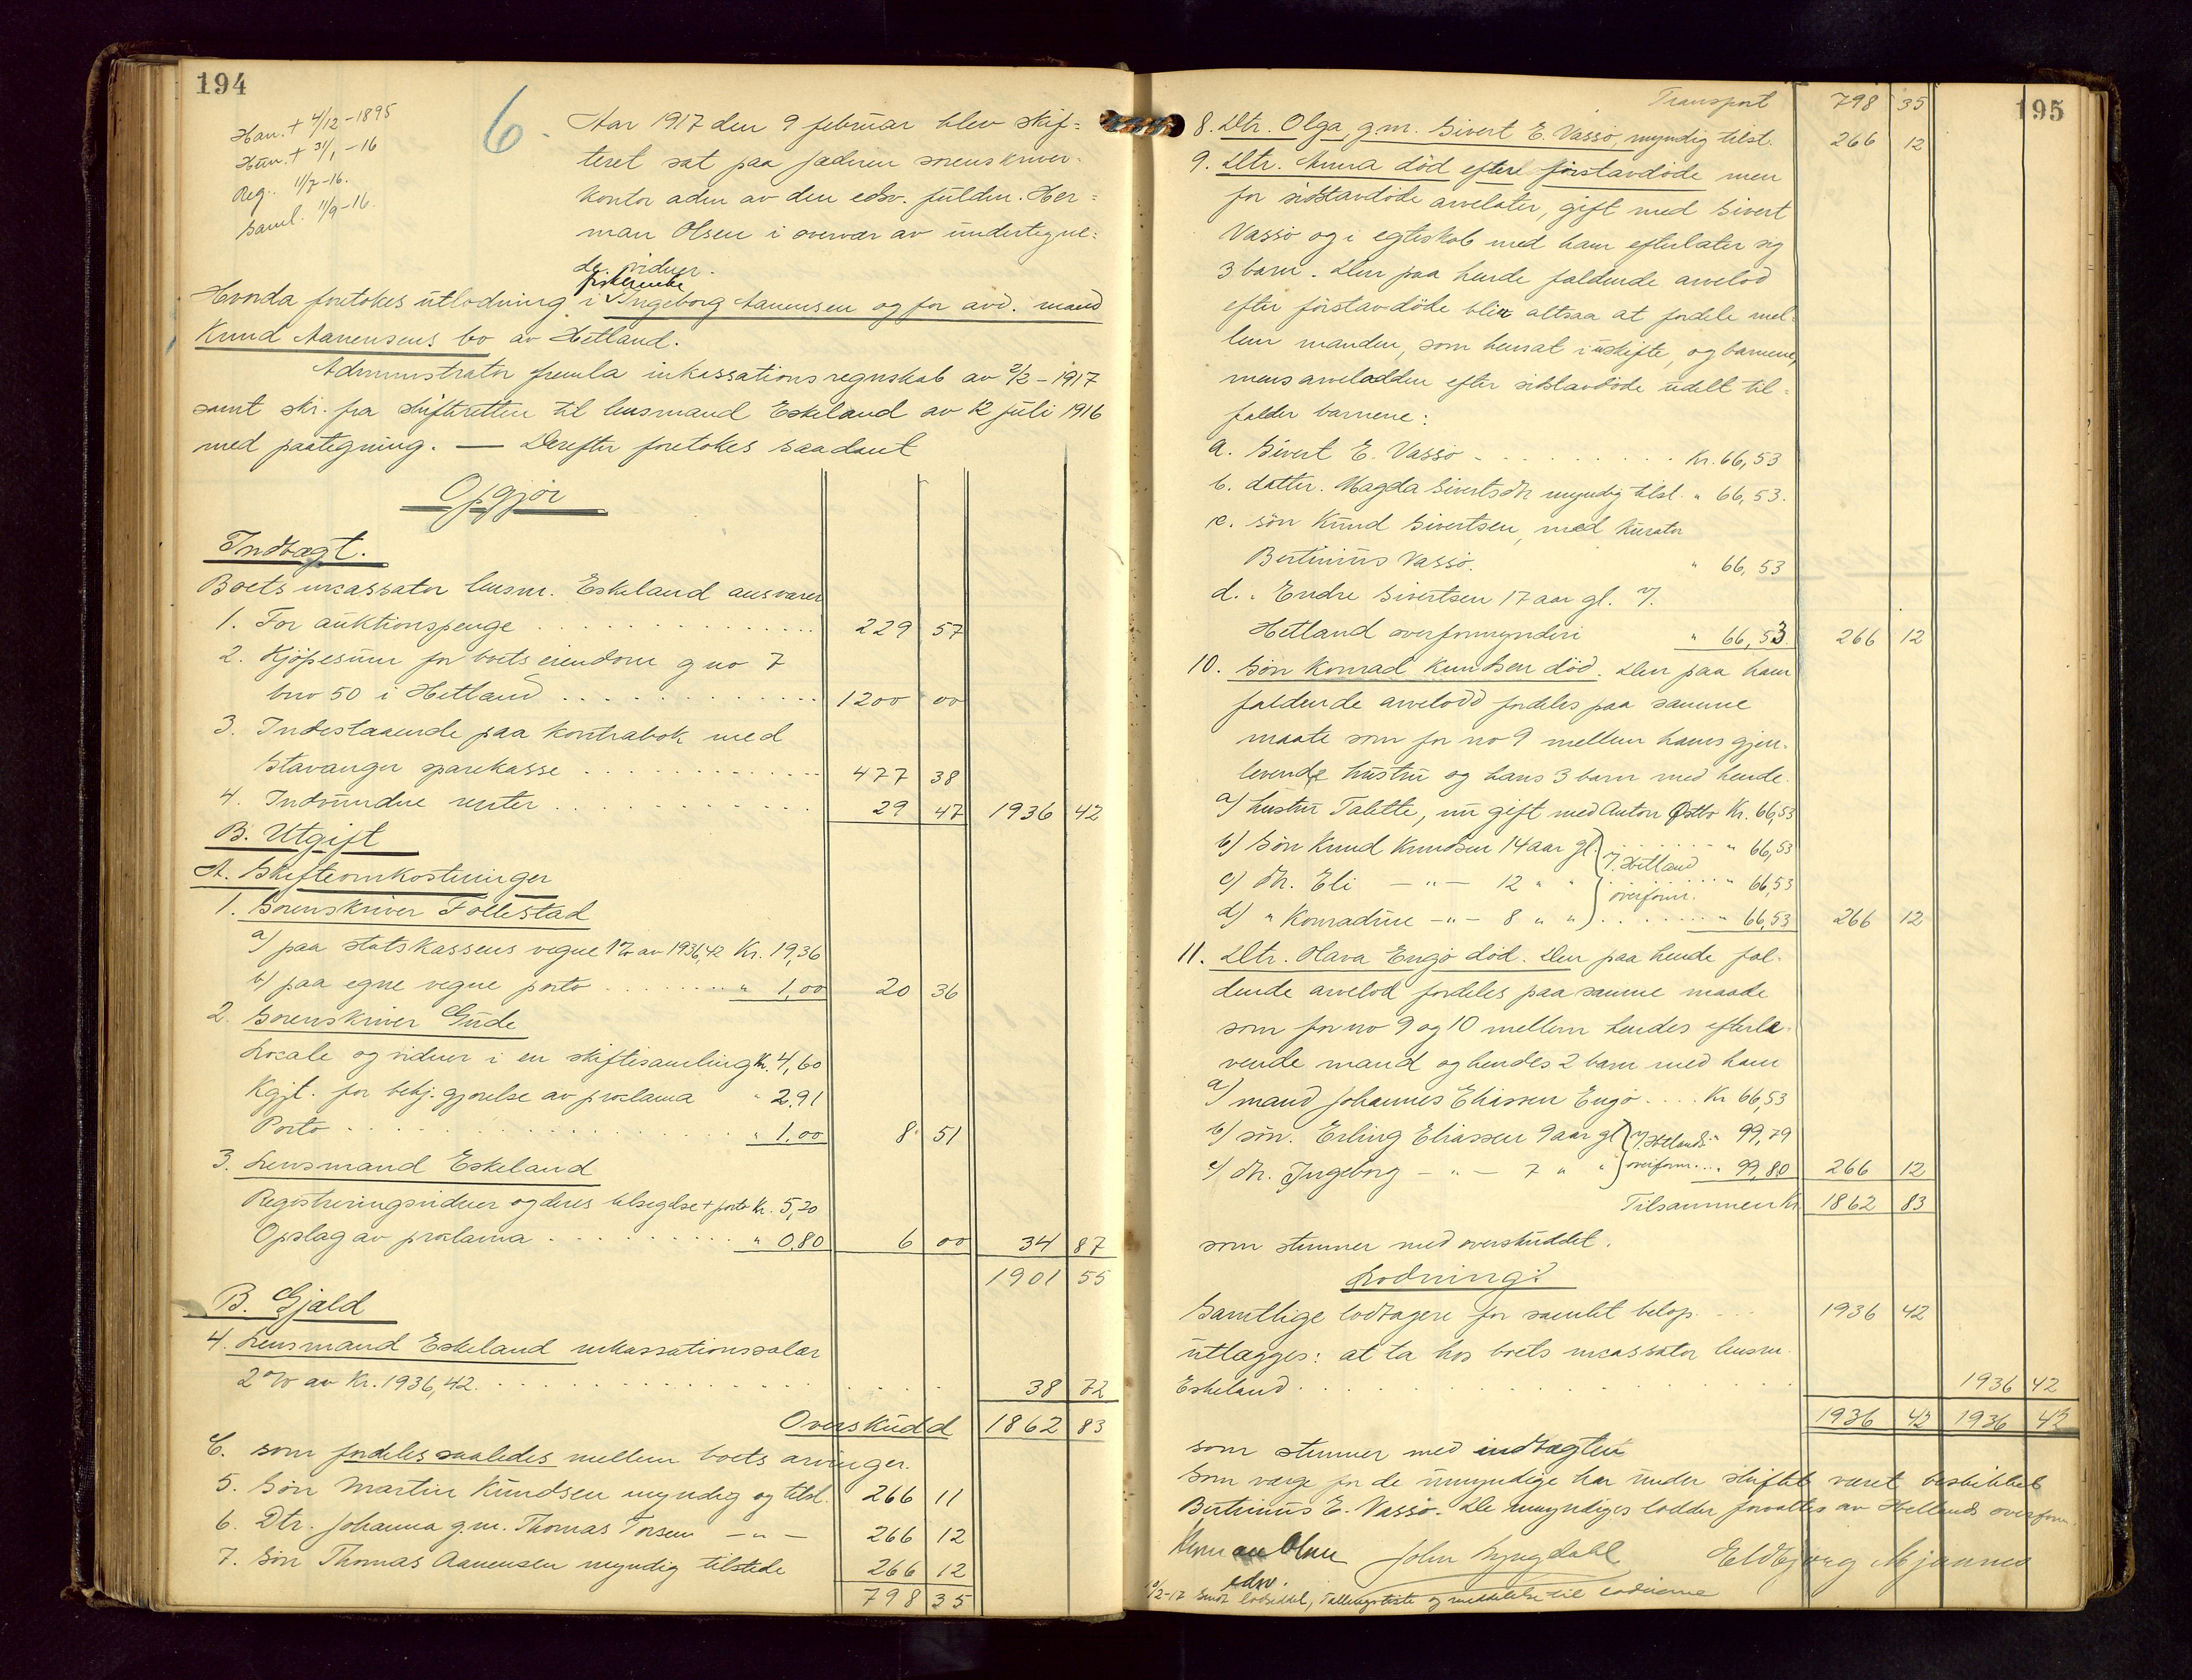 194
Han. + 4/12 - 1895
Hun. + 31/1 - 16
Reg. 11/7 - 16.
Saml. 11/9 - 16.
6.
Aar 1917 den 9 februar blev skif=
teret sat paa Jæderen sorenskriver-
kontor adm av den edsv. fuldm. Her=
man Olsen i overvær av undertegne=
de vidner.
Hvorda foretokes utlodning i Ingeborg Aanensen og for avd. mand
Knud Aanensens bo av Hetland.
Administrator fremla inkassationsregnskab av 2/2 - 1917
samt skr. fra skifteretten til lensmand Eskeland av 12 juli 1916
med paategning. — Derefter foretokes saadant
Opgjør
Indtægt.
Boets incassator lensm. Eskeland ansvarer
1. For auktionspenge 229 57
2. Kjøpesum for boets eiendom gno 7
bno 50 i Hetland 1200 00
3. Indestaaende paa kontrabok med
Stavanger sparekasse 477 38
4. Indvundne renter 29 47 1936 42
B. Utgift
A. Skifteomkostninger
1. Sorenskriver Follestad
a) paa statskassens vegne 1% av 1936,42 Kr. 19,36
b) paa egne vegne porto " 1,00 20 36
2. Sorenskriver Gude
Locale og vidner i en skiftesamling Kr. 4,60
Kgjt. for bekj. gjørelse av proclama " 2,91
Porto " 1,00 8 51
3. Lensmand Eskeland
Registreringsvidner og deres tilsigelse + porto Kr. 5,20
Opslag av proclama " 0,80 6 00 34 87
1901 55
B. Gjæld
4. Lensmand Eskeland inkassationssalær
2 % av Kr. 1936,42. 38 72
Overskudd 1862 83
C. som fordeles saaledes mellem boets arvinger.
5. Søn Martin Knudsen myndig og tilst. 266 11
6. Dtr. Johanna g.m. Thomas Torsen — " — 266 12
7. Søn Thomas Aanensen myndig tilstede 266 12
798 35
195
Transport 798 35
8. Dtr. Olga, g.m. Sivert E. Vassø, myndig tilst. 266 12
9. Dtr. Anna død efter førstavdøde men
før sidstavdøde arvelater, gift med Sivert
Vassø og i egteskab med ham efterlater sig
3 barn. Den paa hende faldende arvelod
efter førstavdøde blir altsaa at fordele mel-
lem manden, som hensat i uskifte, og barnene,
mens arvelodden efter sidstavdøde udelt til=
falder barnene:
a. Sivert E. Vassø Kr. 66,53
b. datter. Magda Sivertsdtr myndig tilst. " 66,53.
c. søn Knud Sivertsen, med kurator
Bertinius Vassø. " 66,53
d. " Endre Sivertsen 17 aar gl. v/.
Hetland overformynderi " 66,53 266 12
10. Søn Konrad Knudsen død. Den paa ham
faldende arvelodd fordeles paa samme
maate som for no 9 mellem hans gjen-
levende hustru og hans 3 barn med hende.
a) hustru Talette, nu gift med Anton Østbø Kr. 66,53
b) Søn Knud Knudsen 14 aar gl. " 66,53
v/. Hetland
c) dtr. Eli — " — 12 " " " 66,53
overform.
d) " Konradine — " — 8 " " " 66,53 266 12
11. Dtr. Olava Engø død. Den paa hende fal-
dende arvelod fordeles paa samme maade
som for no 9 og 10 mellem hendes efterle-
vende mand og hendes 2 barn med ham
a) mand Johannes Eliassen Engø Kr 66,53
b) søn. Erling Eliassen 9 aar gl v/. Hetlands " 99,79
c) dtr. Ingeborg — " — 7 " " overform. " 99,80 266 12
Tilsammen Kr. 1862 83
som stemmer med overskuddet.
Lodning:
Samtlige lodtagere for samlet beløp 1936 42
utlægges: at ta hos boets incassator lensm.
Eskeland. 1936 42
1936 42 1936 42
som stemmer med indtægten
Som værge for de umyndige har under skiftet været beskikket
Bertinius E. Vassø. De umyndiges lodder forvaltes av Hetlands overform.
Herman Olsen John Lyngdahl Eldbjørg
edsv.
10/2-17 lodseddel, og meddelelse til